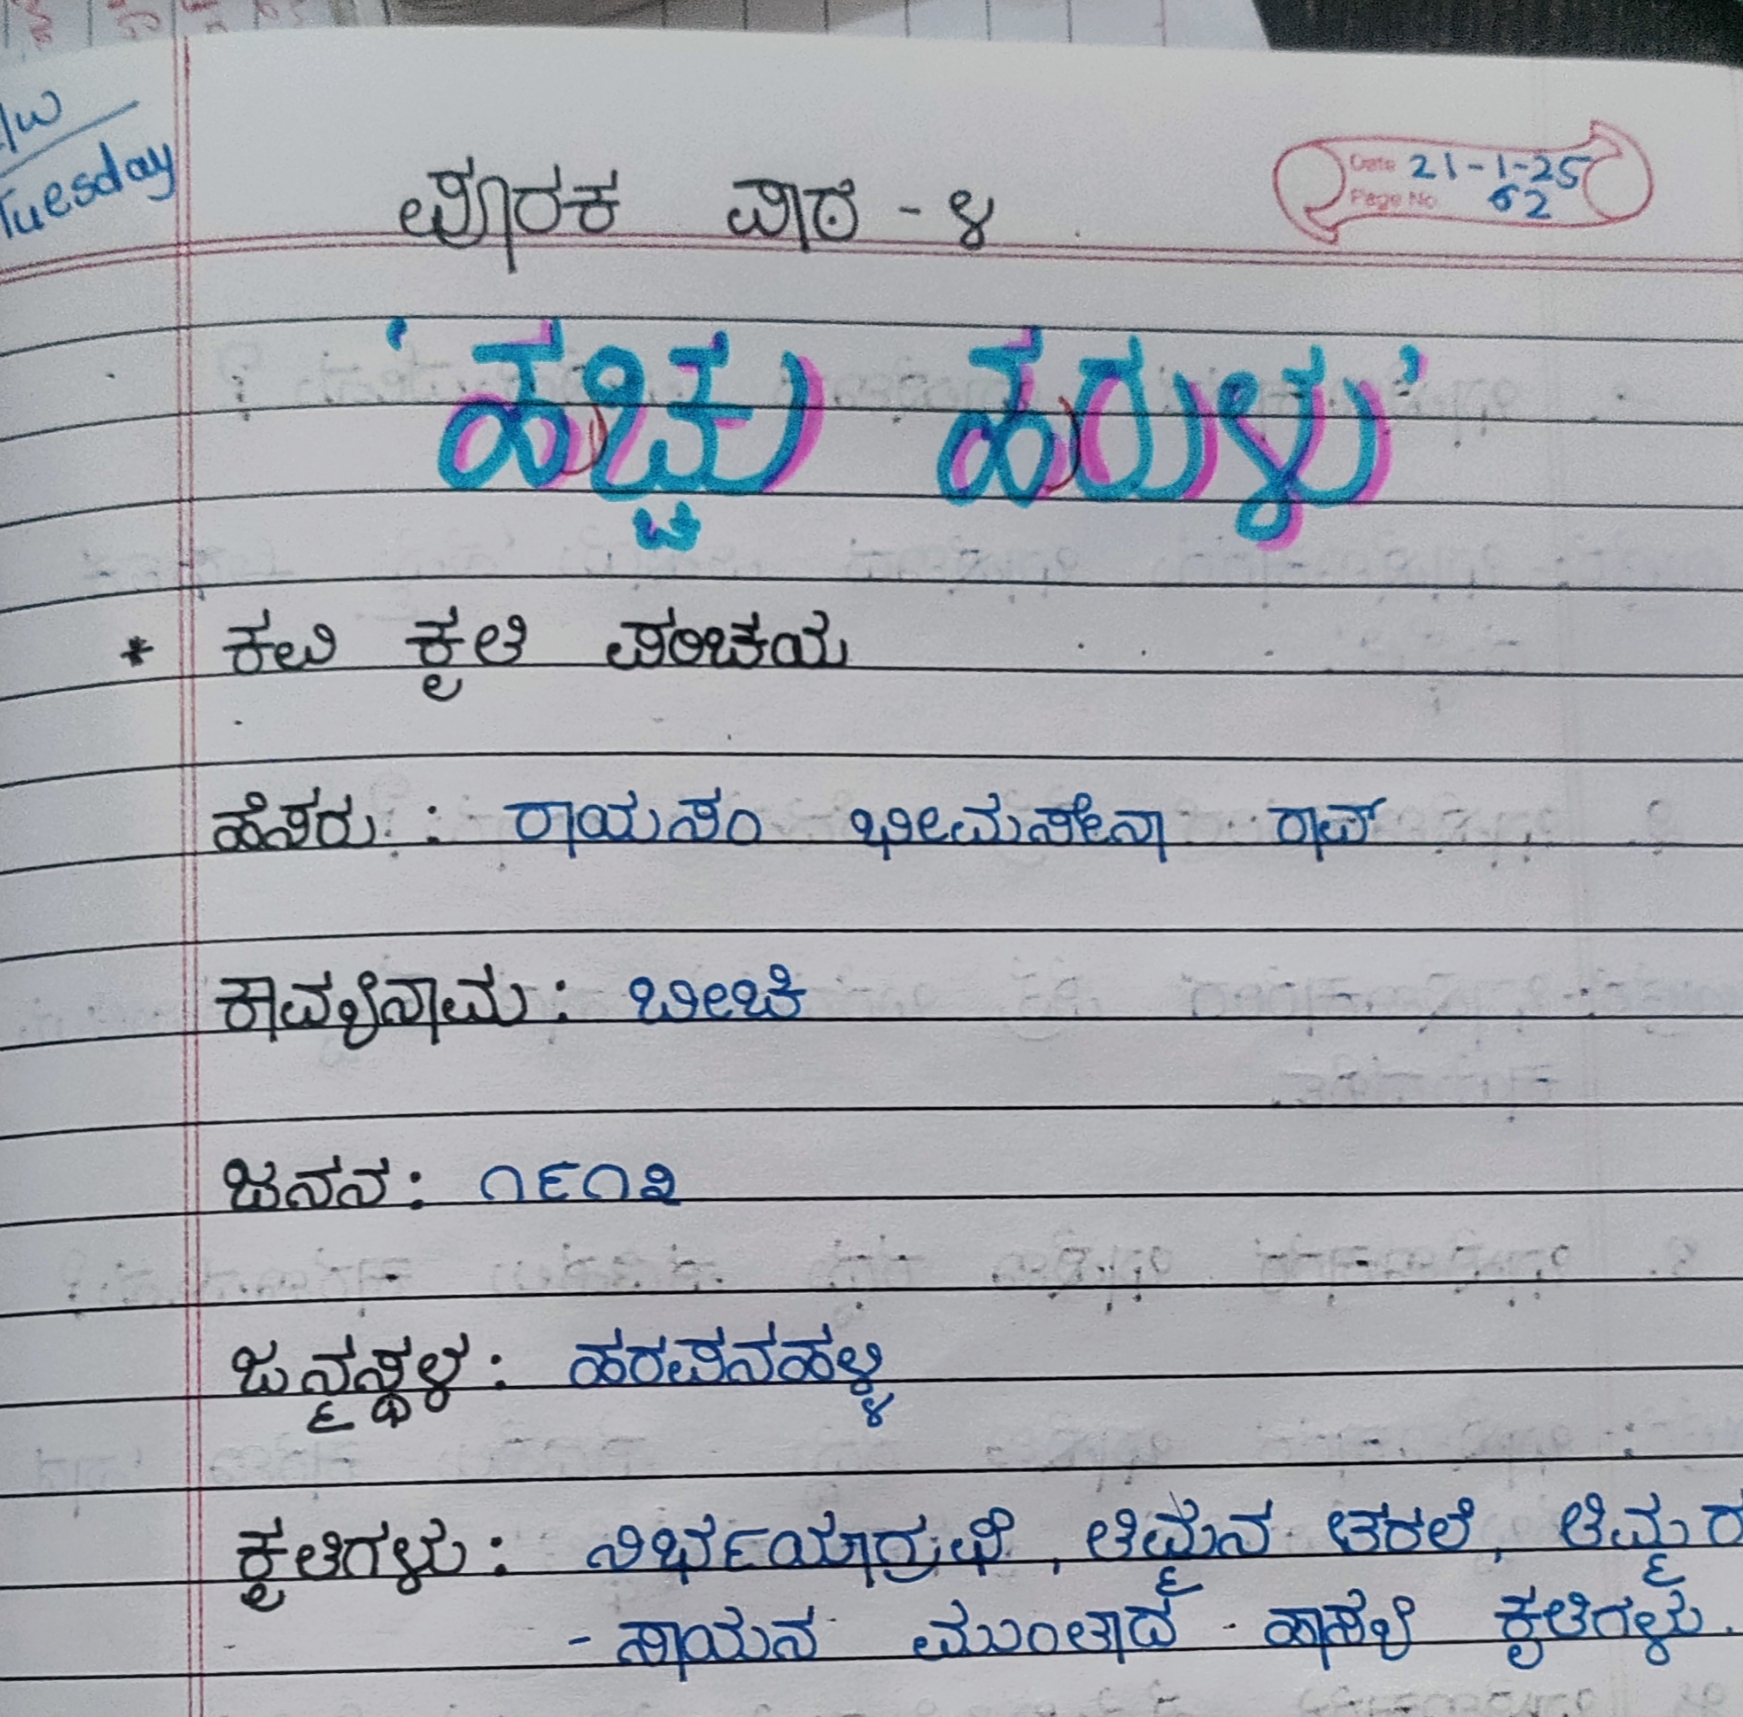 /w
Tuesday
Date 21-1-25
Page No 62
ಪೂರಕ ಪಾಠ - ೪
'ಹುಚ್ಚು ಹುರುಳು'
* ಕವಿ ಕೃತಿ ಪರಿಚಯ
ಹೆಸರು : ರಾಯಸಂ ಭೀಮಸೇನಾ ರಾವ್
ಕಾವ್ಯನಾಮ : ಬೀಚಿ
ಜನನ : ೧೯೧೩
ಜನ್ಮಸ್ಥಳ : ಹರಪನಹಳ್ಳಿ
ಕೃತಿಗಳು : ತಿಮ್ಮನ ತರಲೆ, ತಿಮ್ಮರ
- ಸಾಯನ ಮುಂತಾದ ಹಾಸ್ಯ ಕೃತಿಗಳು.